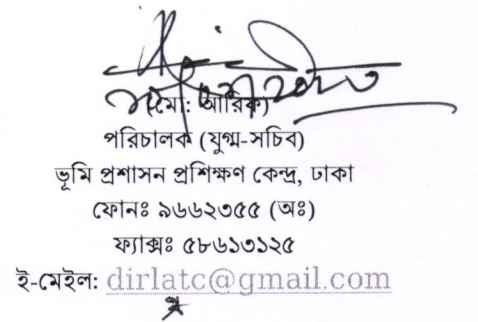 (মো: আরিফ)
পরিচালক (যুগ্ম-সচিব)
ভূমি প্রশাসন প্রশিক্ষণ কেন্দ্র, ঢাকা
ফোনঃ ৯৬৬২৩৫৫ (অঃ)
ফ্যাক্সঃ ৫৮৬১৩১২৫
ই-মেইল: dirlatc@gmail.com